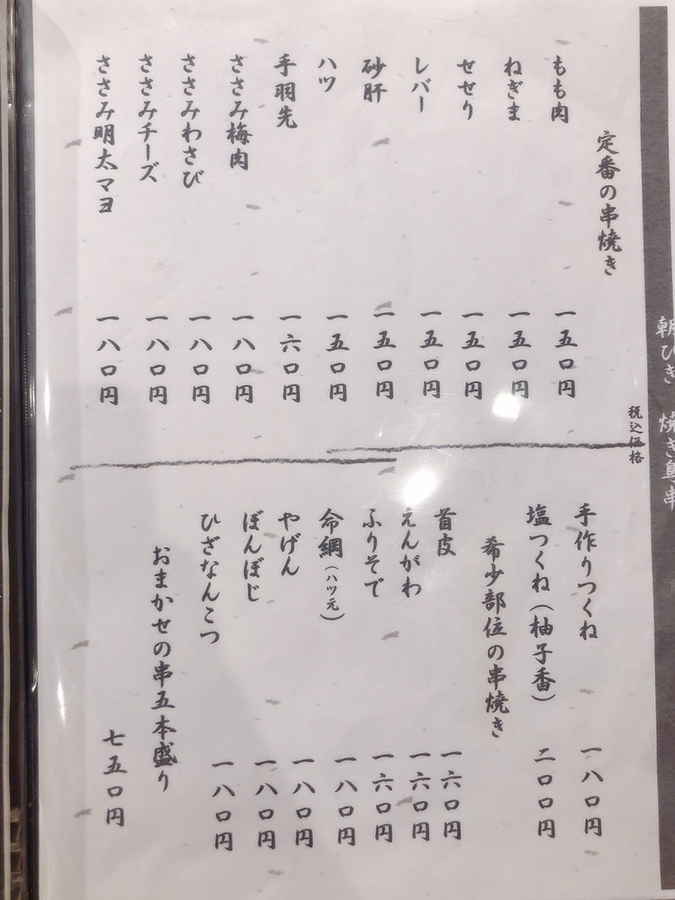 朝びき 焼き鳥串
税込価格
定番の串焼き
もも肉 一五〇円
ねぎま 一五〇円
せせり 一五〇円
レバー 一五〇円
砂肝 一五〇円
ハツ 一五〇円
手羽先 一六〇円
ささみ梅肉 一八〇円
ささみわさび 一八〇円
ささみチーズ 一八〇円
ささみ明太マヨ 一八〇円
手作りつくね 一八〇円
塩つくね(柚子香) 二〇〇円
希少部位の串焼き
首皮 一六〇円
えんがわ 一六〇円
ふりそで 一六〇円
命綱(ハツ元) 一八〇円
やげん 一八〇円
ぼんぼじ 一八〇円
ひざなんこつ 一八〇円
おまかせの串五本盛り
七五〇円